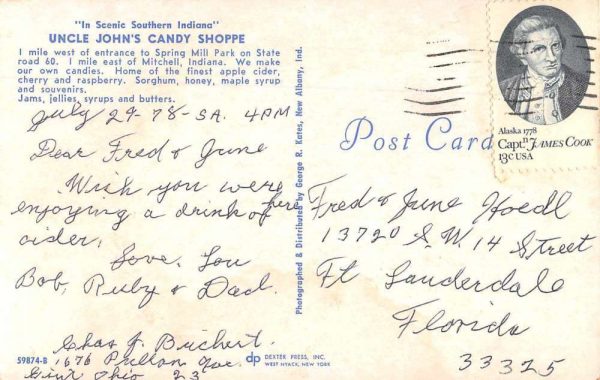 "In Scenic Southern Indiana"
UNCLE JOHN'S CANDY SHOPPE
1 mile west of entrance to Spring Mill Park on State
road 60. 1 mile east of Mitchell, Indiana. We make
our own candies. Home of the finest apple cider,
cherry and raspberry. Sorghum, honey, maple syrup
and souvenirs.
Jams, jellies, syrups and butters.
July 29-78-SA. 4 PM
Dear Fred & June
Wish you were
enjoying a drink of here
cider.
Love. Lou
Bob, Ruby & Dad.
Chas J. Buchert.
1676 Pullan Ave.
Cint Ohio 23
59874-B
Photographed & Distributed by George R. Kates, New Albany, Ind.
dp DEXTER PRESS, INC.
WEST NYACK, NEW YORK
Post Card
Alaska 1778
Capt'n JAMES COOK
13c USA
Fred & June Hoedl
13720 S.W. 14 Street
Ft Lauderdale
Florida
33325